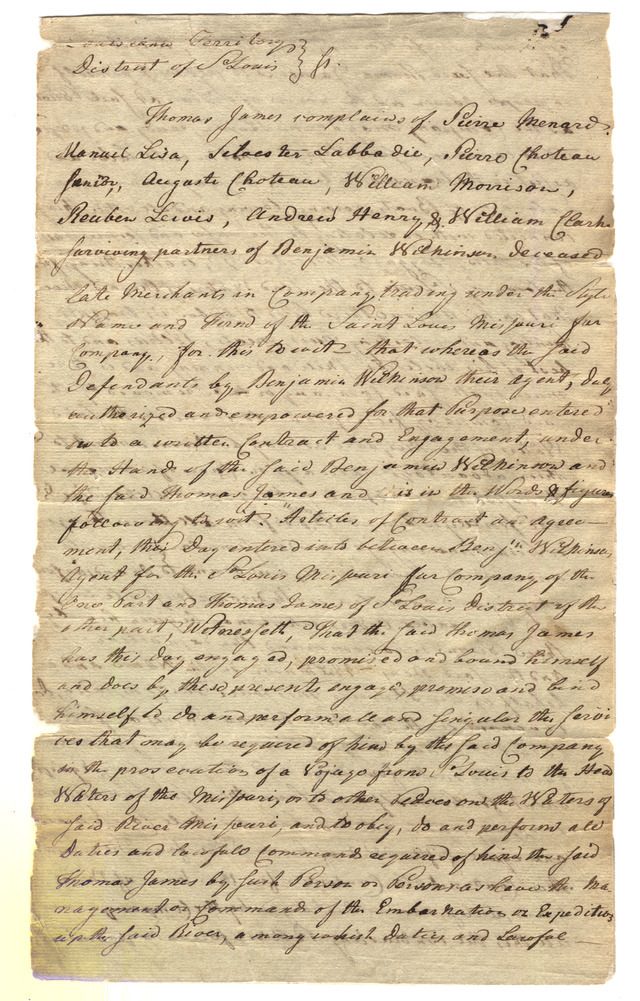 Louisiana Territory }
District of St Louis } ss.
Thomas James complains of Pierre Menard,
Manuel Lisa, Silvester Labbadie, Pierre Choteau
Senior, Auguste Choteau, William Morrison,
Reuben Lewis, Andrew Henry, & William Clark
surviving partners of Benjamin Wilkinson deceased
late Merchants in Company, trading under the Style
Name and Firm of the Saint Louis Missouri fur
Company, for this to wit that whereas the said
Defendants by Benjamin Wilkinson their agent, duly
authorized and empowered for that Purpose entered
into a written Contract and Engagement, under
the Hand of the said Benjamin Wilkinson and
the said Thomas James and is in the Words & figures
following to wit. "Articles of Contract and Agree-
ment, this Day entered into between Benjn Wilkinson,
Agent for the St Louis Missouri fur Company of the
One Part and Thomas James of St Louis District of the
other part, Witnesseth, That the said Thomas James
has this Day engaged, promised and bound himself
and does by these presents engage promise and bind
himself to do and perform all and singular the Servi
ces that may be required of him by the said Company
in the prosecution of a Voyage from St Louis to the Head
Waters of the Missouri, or to other places on the Waters of
said River Missouri, and to obey, do and perform all
Duties and lawfull Commands required of him the said
Thomas James by such Person or Persons as have the Ma-
nagement or Command of the Embarkation or Expedition
up the said River, among which Duties and Lawful